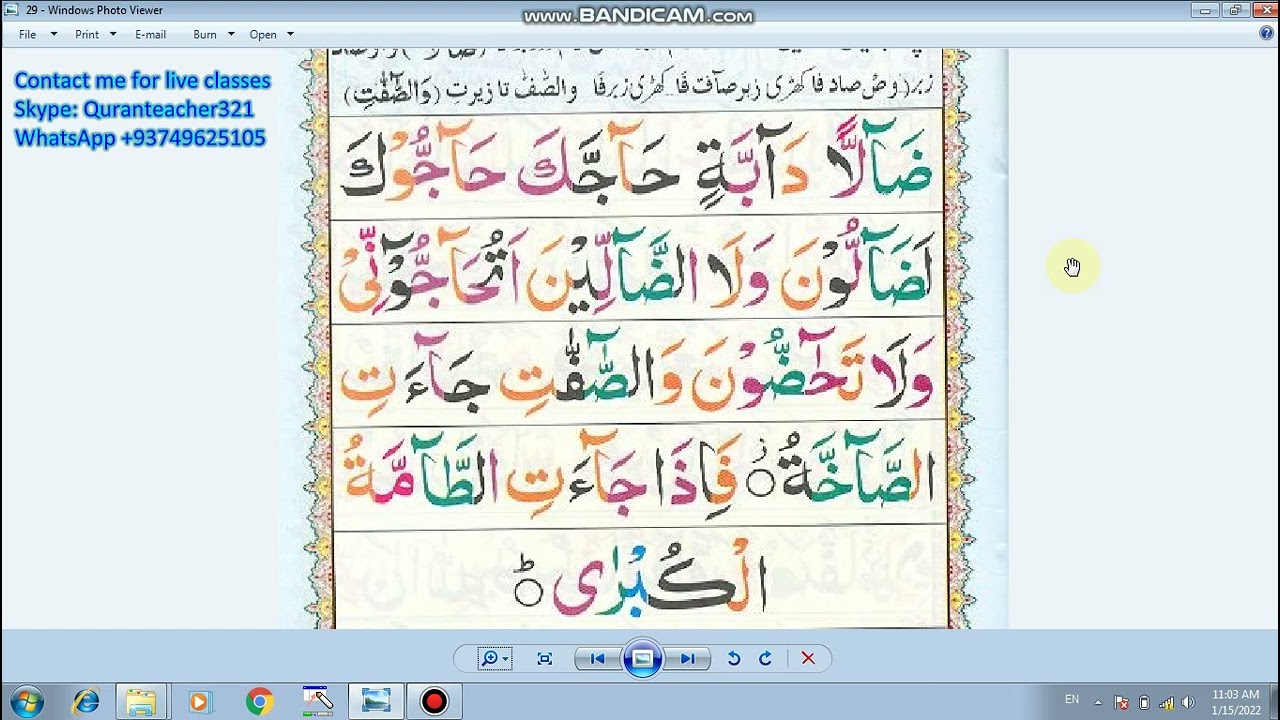 29 - Windows Photo Viewer
www.BANDICAM.com
File Print E-mail Burn Open
Contact me for live classes
Skype: Quranteacher321
WhatsApp +93749625105
زبر(وَصّ صاد فا کھڑی زبر صآفّ فَا کھڑی زبر فا والصّٰفّٰ تا زیر تِ (وَالصّٰٓفّٰتِ)
ضَآلًّا دَآبَّةٍ حَآجَّكَ حَآجُّوْكَ
لَضَآلُّوْنَ وَلَا الضَّآلِّيْنَ اَتُحَآجُّوْٓنِّيْ
وَلَا تَحٰٓضُّوْنَ وَالصّٰٓفّٰتِ جَآءَتِ
الصَّآخَّةُ ۟ز فَاِذَا جَآءَتِ الطَّآمَّةُ
الْكُبْرٰى ۟ؕ
EN
11:03 AM
1/15/2022